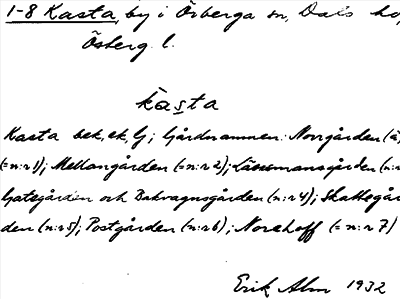 1-8 Kasta, by i Örberga sn, Dals hd,
Östberg. l.
kasta
Kasta bek, ek, G; Gårdsnamnen: Norrgården (ä
(=n:r 1); Mellangården (=n:r 2); Länsmansgården (n:r
Gatsgården och Bakvagnsgården (n:r 4); Skattegår
den (n:r 5); Postgården (n:r 6); Norehoff (= n:r 7)
Erik Alm 1932